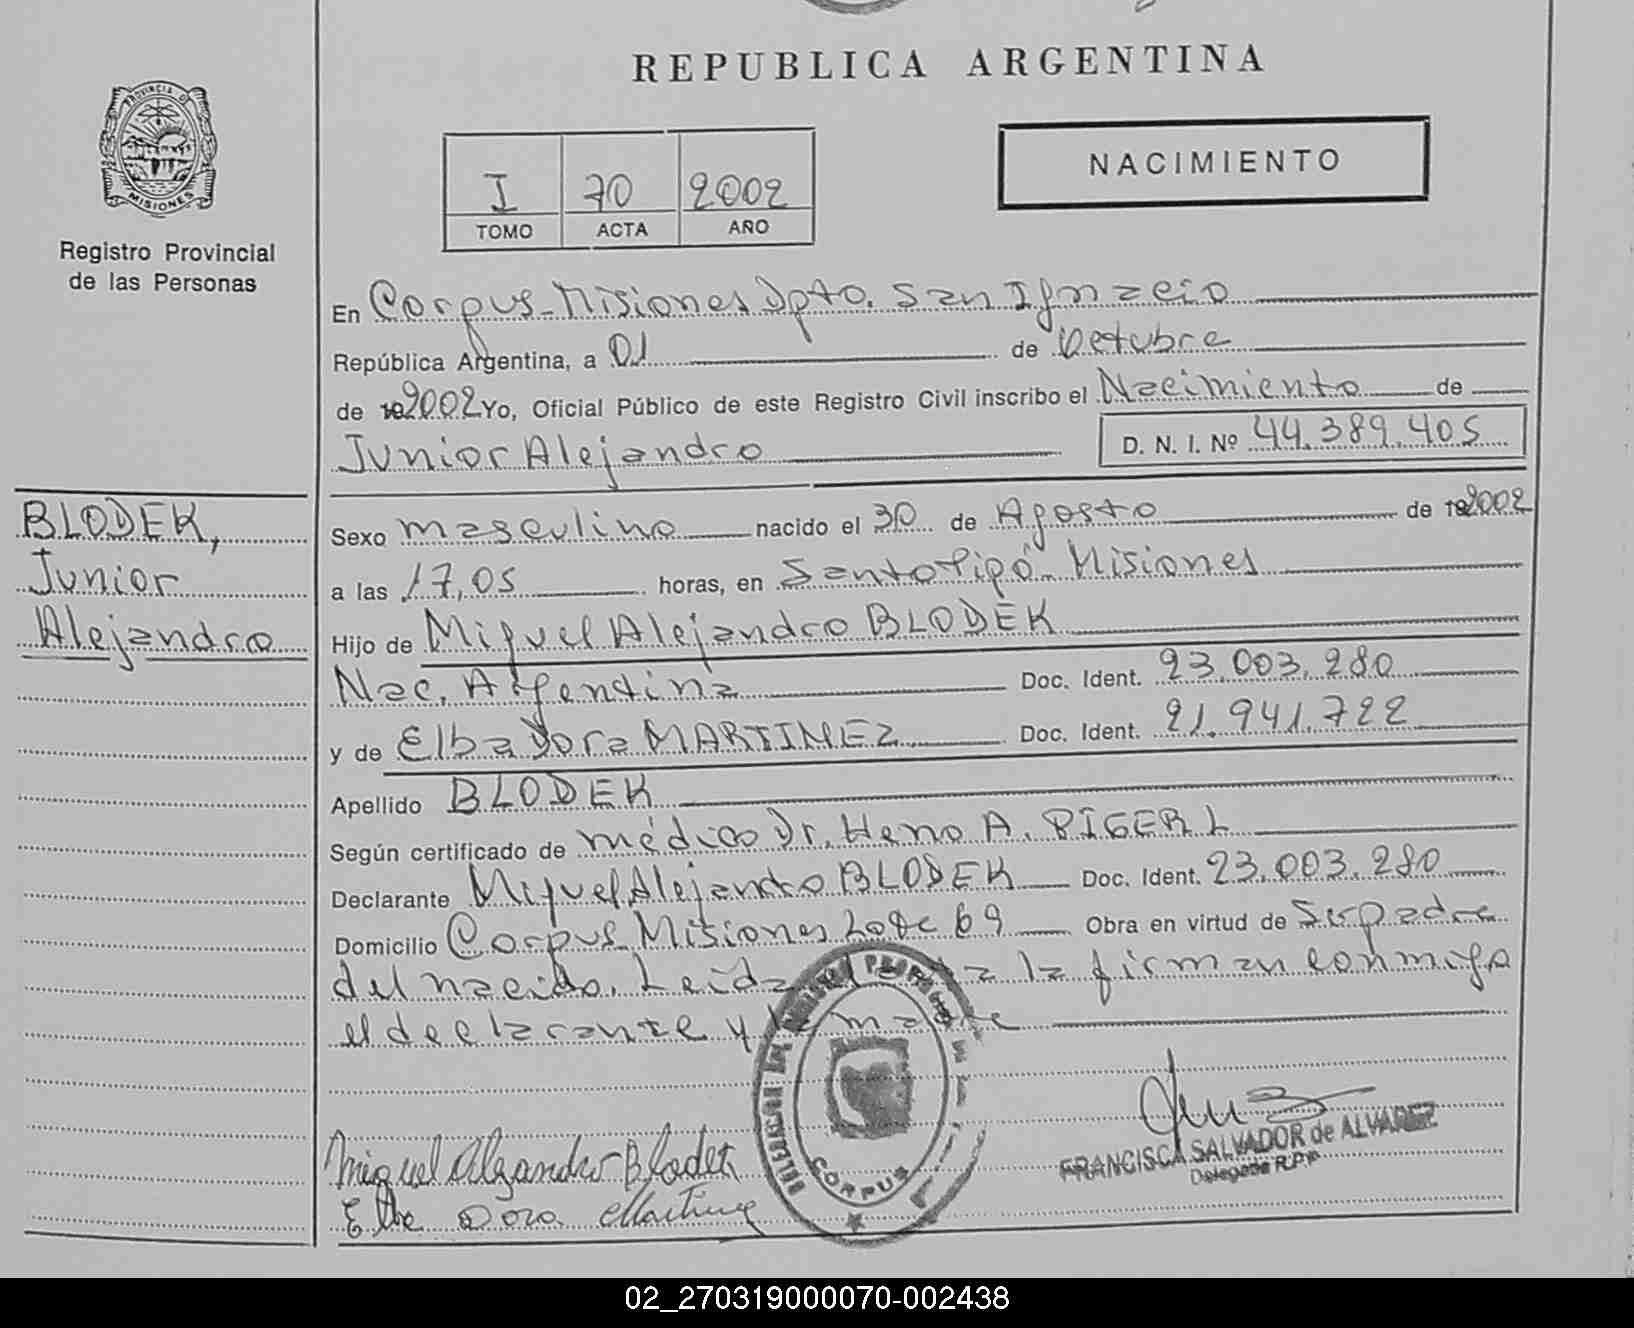 REPUBLICA ARGENTINA
PROVINCIA DE
MISIONES
Registro Provincial
de las Personas
I 70 2002
TOMO ACTA AÑO
NACIMIENTO
En Corpus-Misiones Dpto. San Ignacio
República Argentina, a 01 de Octubre
de 2002 Yo, Oficial Público de este Registro Civil inscribo el Nacimiento de
Junior Alejandro D. N. I. Nº 44.389.405
BLODEK,
Junior
Alejandro
Sexo masculino nacido el 30 de Agosto de 2002
a las 17,05 horas, en Santo Pipó-Misiones
Hijo de Miguel Alejandro BLODEK
Nac. Argentina Doc. Ident. 23.003.280
y de Elba Dora MARTINEZ Doc. Ident. 21.941.722
Apellido BLODEK
Según certificado de médico Dr. Heno A. PIGERL
Declarante Miguel Alejandro BLODEK Doc. Ident. 23.003.280
Domicilio Corpus Misiones Lote 69 Obra en virtud de Ser padre
del nacido. Leida el acta la firman conmigo
el declarante y la madre
CORPUS
Miguel Alejandro Blodek
Elba Dora Martinez
FRANCISCA SALVADOR de ALVAREZ
Delegada R.P.P
02_270319000070-002438